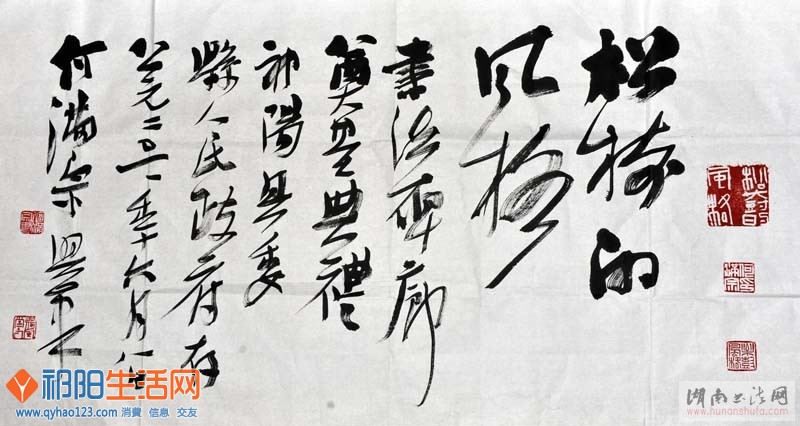 松樹的
风格
書法碑廊
奠基典禮
祁陽县委
縣人民政府存
公元二〇一年六月八日
何滿宗
祁阳生活网
www.qyhao123.com 消費 信息 交友
湖南书法网
www.hunanshufa.com